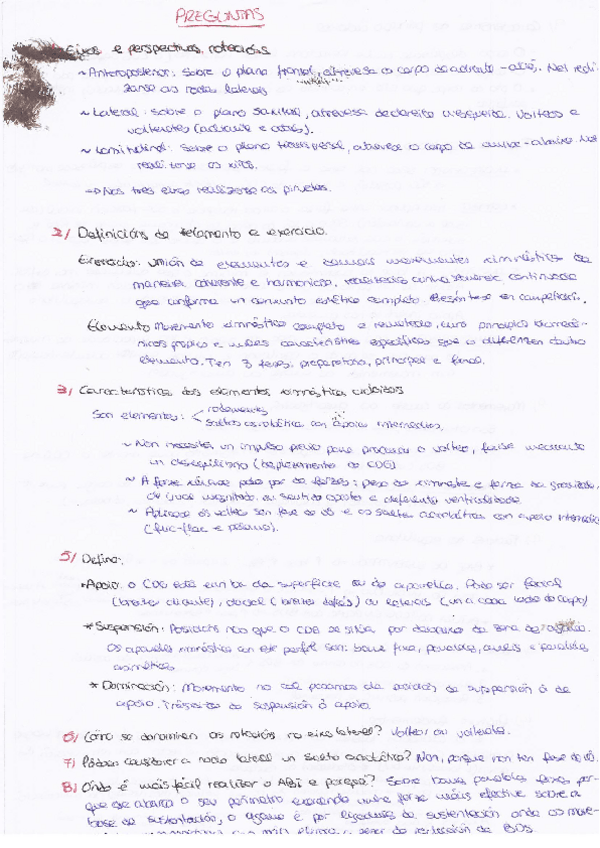 PREGUNTAS
Eixos e perspectivas rotacións
~ Anteroposterior: sobre o plano frontal, atravesa o corpo de adiante-atrás. Nel realí
zanse as rodas laterais
~ Lateral: sobre o plano, atravesa de dereita a esquerda. Volteos e
volteretas (adiante e atrás).
~ Lonxitudinal: sobre o plano transversal, atravesa o corpo de arriba-abaixo. Nel
realízanse os xiros.
→ Nos tres eixos realízanse as piruetas.
2/ Definicións de elemento e exercicio.
Exercicio: unión de elementos e demais movementos ximnásticos de
maneira coherente e harmoniosa, realizados cunha secuencia continuada
que conforma un conxunto estético completo. Preséntase en competición.
Elemento: Movemento ximnástico completo e rematado, cuns principios biomecá-
nicos propios e unhas características específicas que o diferencian doutro
elemento. Ten 3 fases: preparatoria, principal e final.
3/ Características dos elementos ximnásticos
Son elementos: rodamentos
Saltos acrobáticos con apoios intermedios.
~ Non necesita un impulso previo para producir o volteo, faise mediante
un desequilibrio (desplazamento do CDG)
~ A forza dúas forzas: peso do ximnasta e forza da gravidade,
de igual magnitude ou sentido oposto e diferente verticalidade.
~ os volteos sen fase de vó e os saltos acrobáticos con apoio intermedio
(flic-flac e).
5/ Define:
• Apoio: o CDG está enriba da superficie ou do aparello. Pode ser facial
(brazos diante), dorsal (brazos detrás) ou laterais (un a cada lado do corpo)
* Suspensión: Posición na que o CDG se sitúa por debaixo da zona de agarre.
Os aparellos ximnásticos con este perfil son: barra fixa, paralelas, anelas e paralelas
asimétricas
* Dominación: Movemento no cal pasamos da posición de suspensión á de
apoio. Tránsito da suspensión ó apoio.
6/ Cómo se denominan as rotacións no eixo lateral? Volteo ou voltereta.
7/ Pódese considerar a roda lateral un salto acrobático? Non, porque non ten fase de vó.
8/ Onde é máis fácil realizar o ABI e porqué? Sobre barras paralelas fixas, por-
que se abarca o seu perímetro exercendo unha forza máis efectiva sobre a
base de sustentación, o agarre é por de sustentación onde os move-